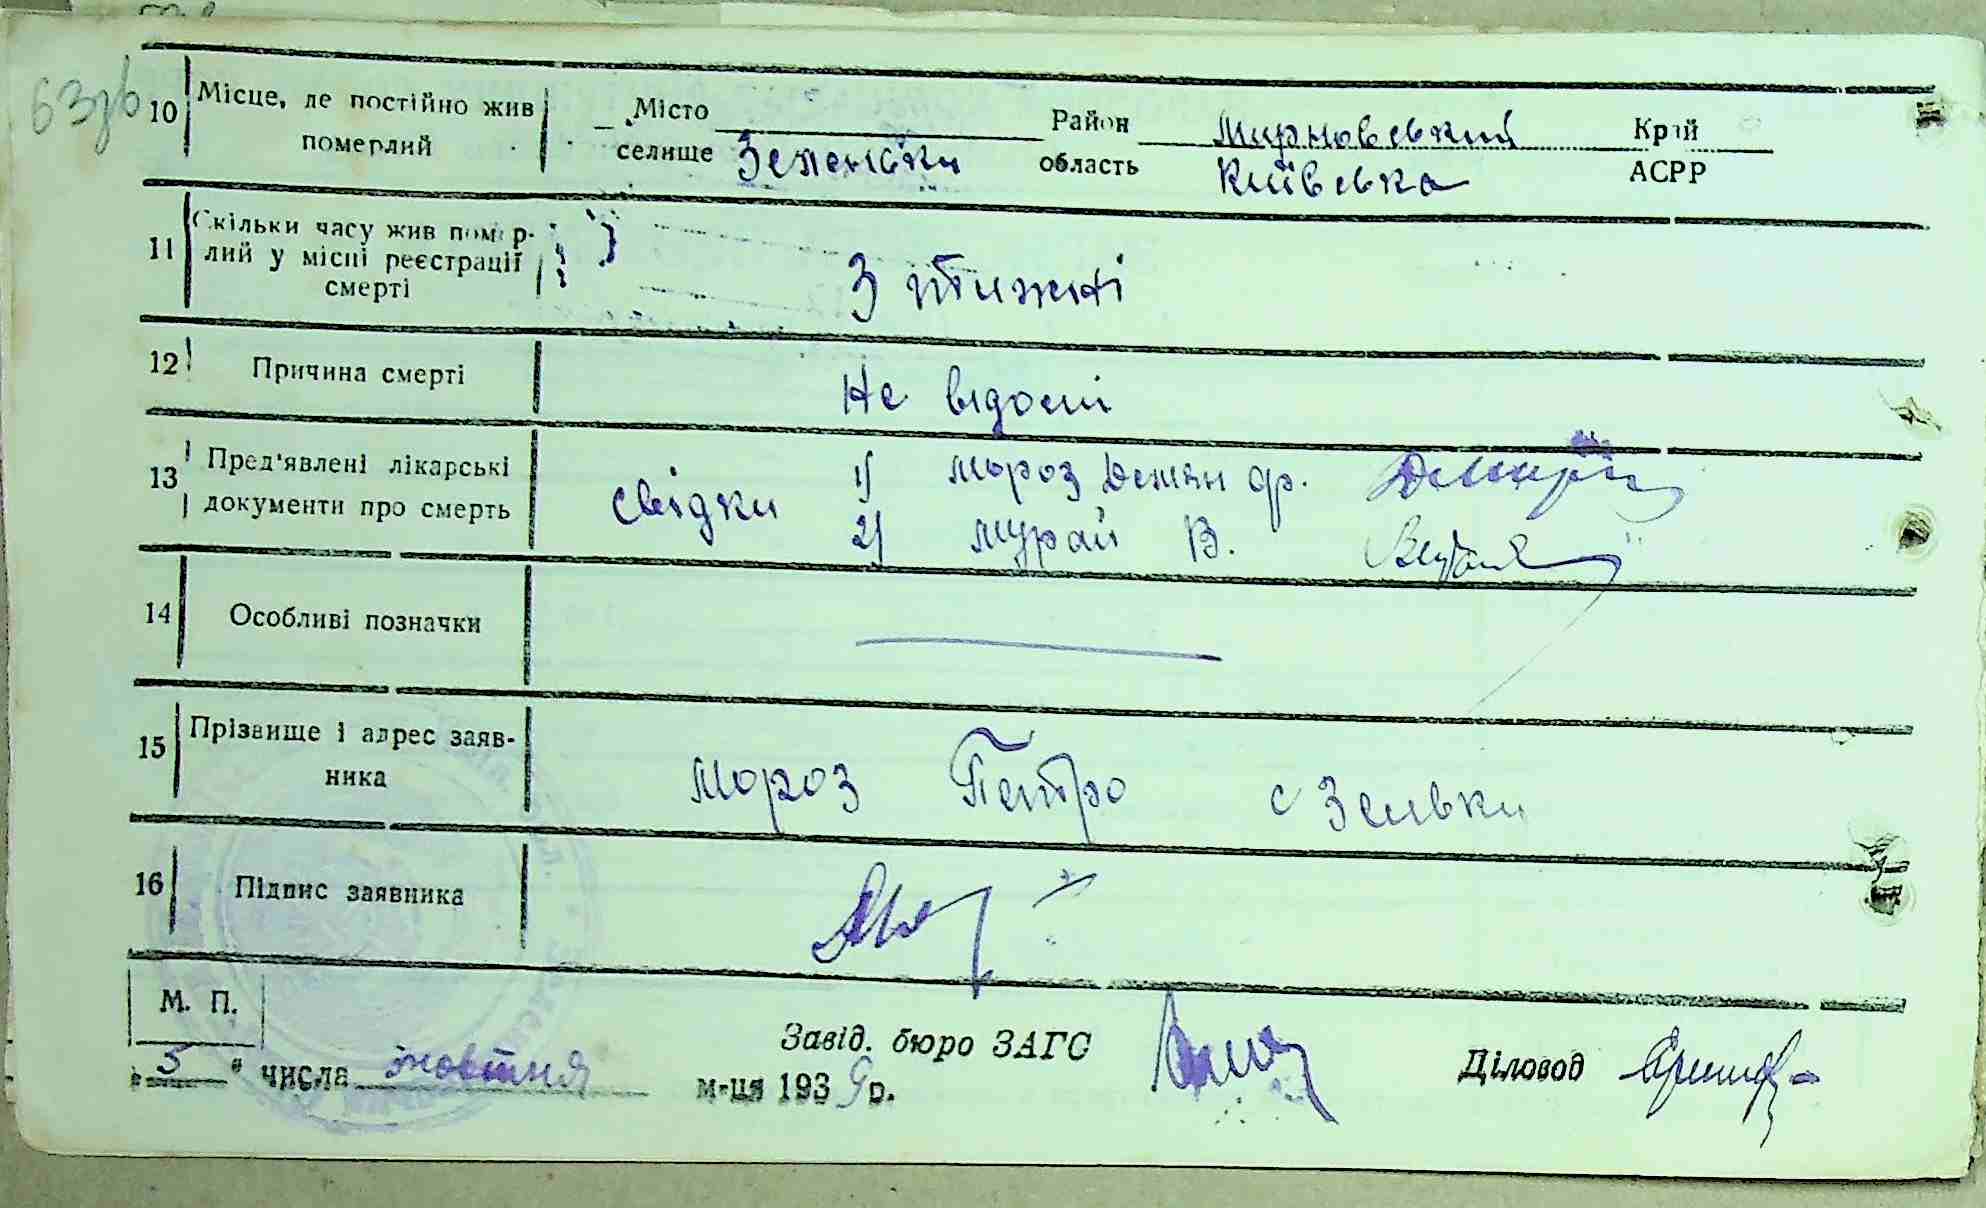 63зв
10 Місце, де постійно жив померлий
Місто Район Мирновський Край
селище Зеленьки область Київська АСРР
11 Скільки часу жив помер-
лий у місці реєстрації
смерті
3 тижні
12 Причина смерті Не відомі
13 Пред'явлені лікарські
документи про смерть
свідки 1) Мороз Демян ф.
2) Мурай В.
14 Особливі позначки
15 Прізвище і адрес заяв-
ника
Мороз Петро с Зеньвки
16 Підпис заявника
М. П.
Завід. бюро ЗАГС Діловод
5 " числа жовтня м-ця 1939 р.